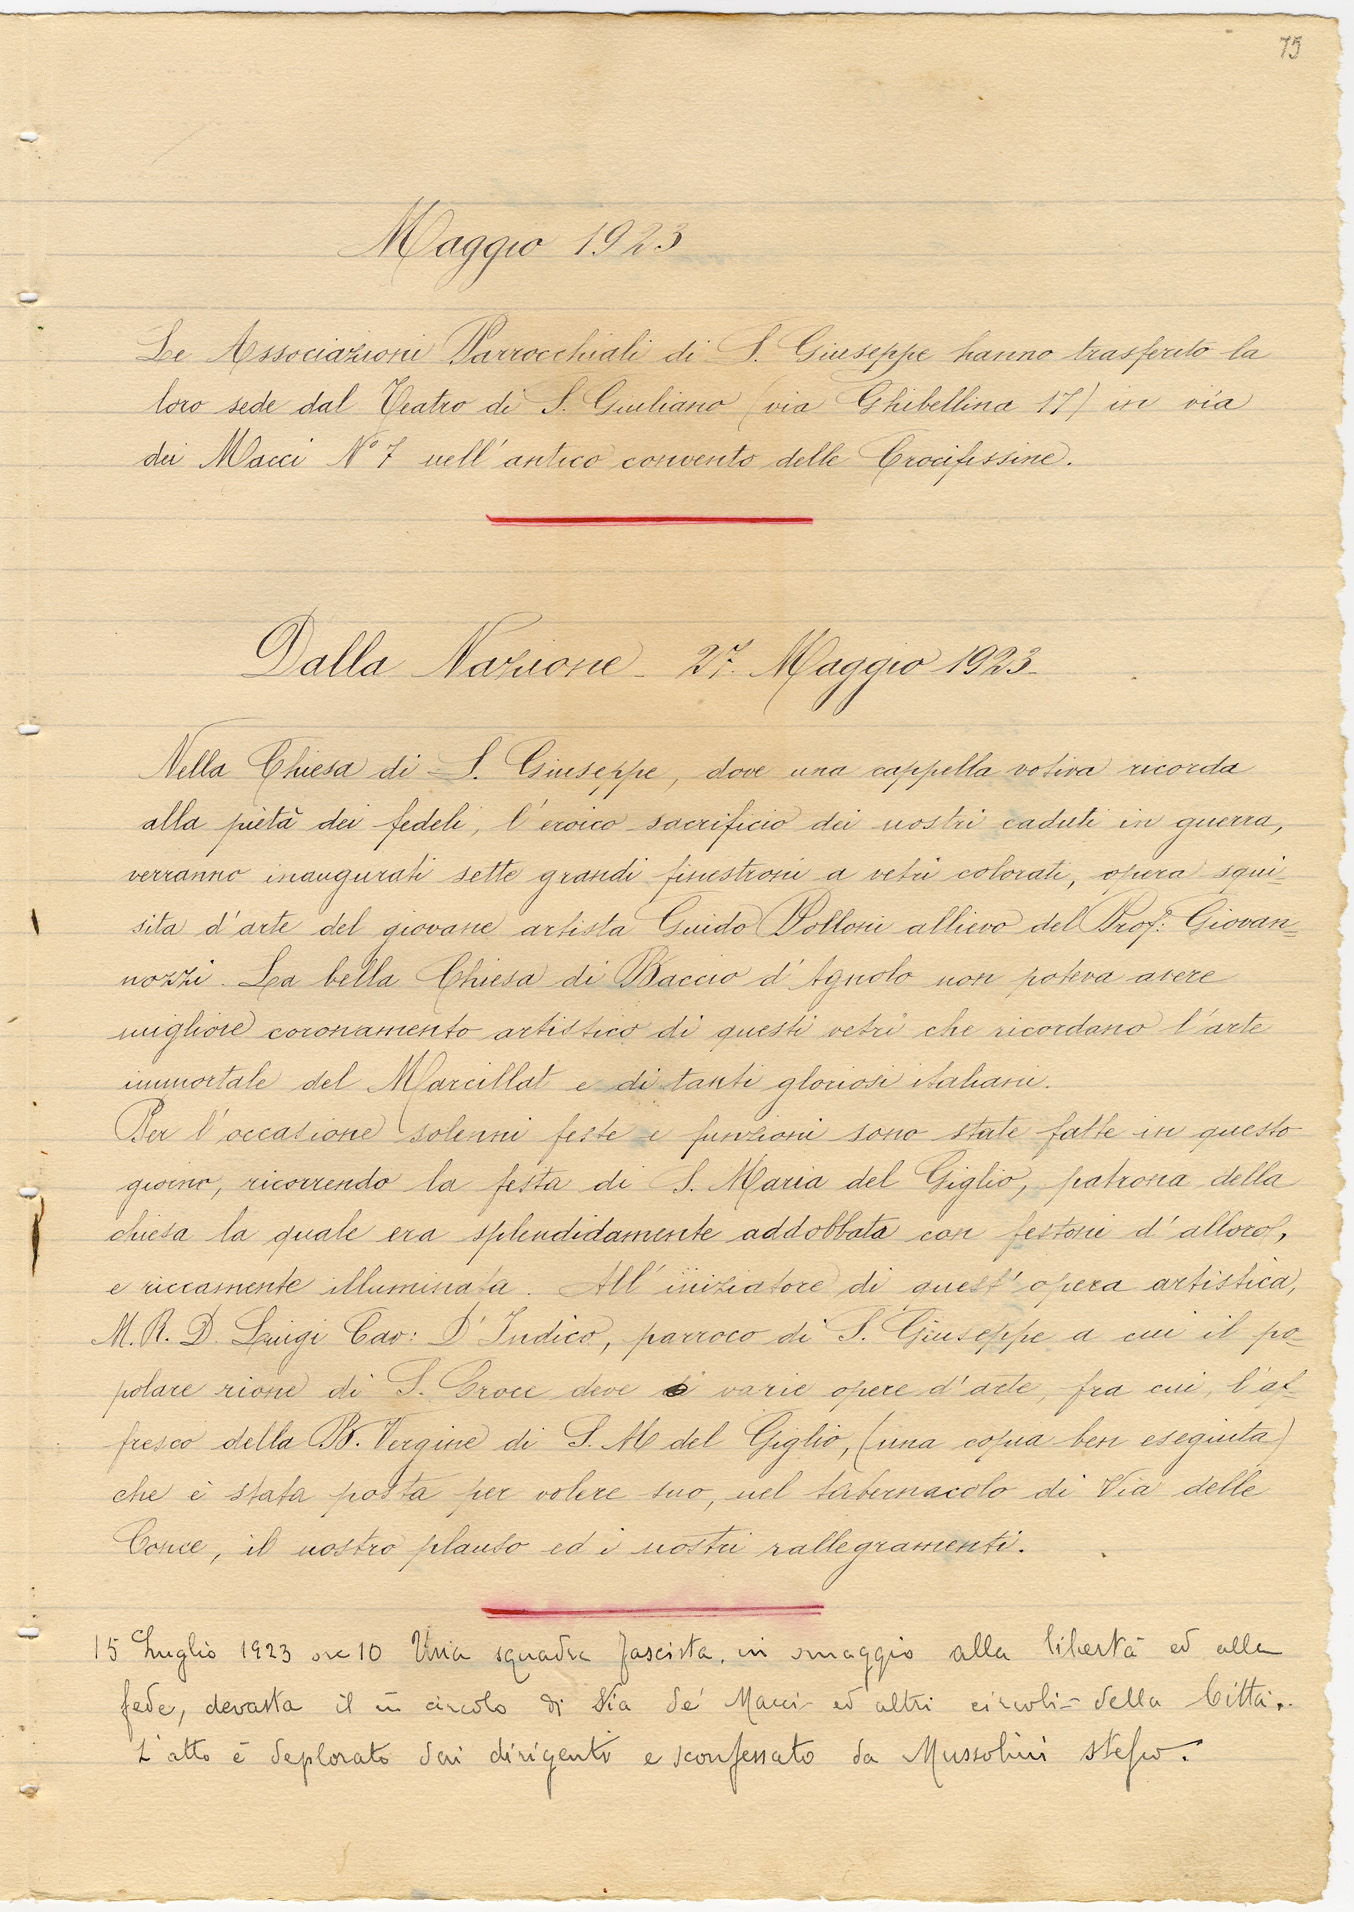 75
Maggio 1923
Le Associazioni Parrocchiali di S. Giuseppe hanno trasferito la
loro sede dal Teatro di S. Giuliano (via Ghibellina 17) in via
dei Macci N° 7 nell'antico convento delle Crocifissine.
Dalla Nazione - 27. Maggio 1923-
Nella Chiesa di S. Giuseppe, dove una cappella votiva ricorda
alla pietà dei fedeli, l'eroico sacrificio dei nostri caduti in guerra,
verranno inaugurati sette grandi finestroni a vetri colorati, opera squi-
sita d'arte del giovane artista Guido Polloni allievo del Prof: Giovan-
nozzi. La bella Chiesa di Baccio d'Agnolo non poteva avere
migliore coronamento artistico di questi vetri che ricordano l'arte
immortale del Marcillat e di tanti gloriosi italiani.
Per l'occasione solenni feste e funzioni sono state fatte in questo
giorno, ricorrendo la festa di S. Maria del Giglio, patrona della
chiesa la quale era splendidamente addobbata con festoni d'alloro,
e riccamente illuminata. All'iniziatore di quest'opera artistica,
M. R. D. Luigi Cav: D'Indico, parroco di S. Giuseppe a cui il po-
polare rione di S. Croce deve varie opere d'arte, fra cui, l'af-
fresco della B. Vergine di S. M del Giglio, (una copia ben eseguita)
che è stata posta per volere suo, nel tabernacolo di Via delle
Conce, il nostro plauso ed i nostri rallegramenti.
15 Luglio 1923 ore 10 Una squadra fascista, in omaggio alla libertà ed alla
fede, devasta il circolo di Via de' Macci ed altri circoli della Città.
L'atto è deplorato dai dirigenti e sconfessato da Mussolini stesso.